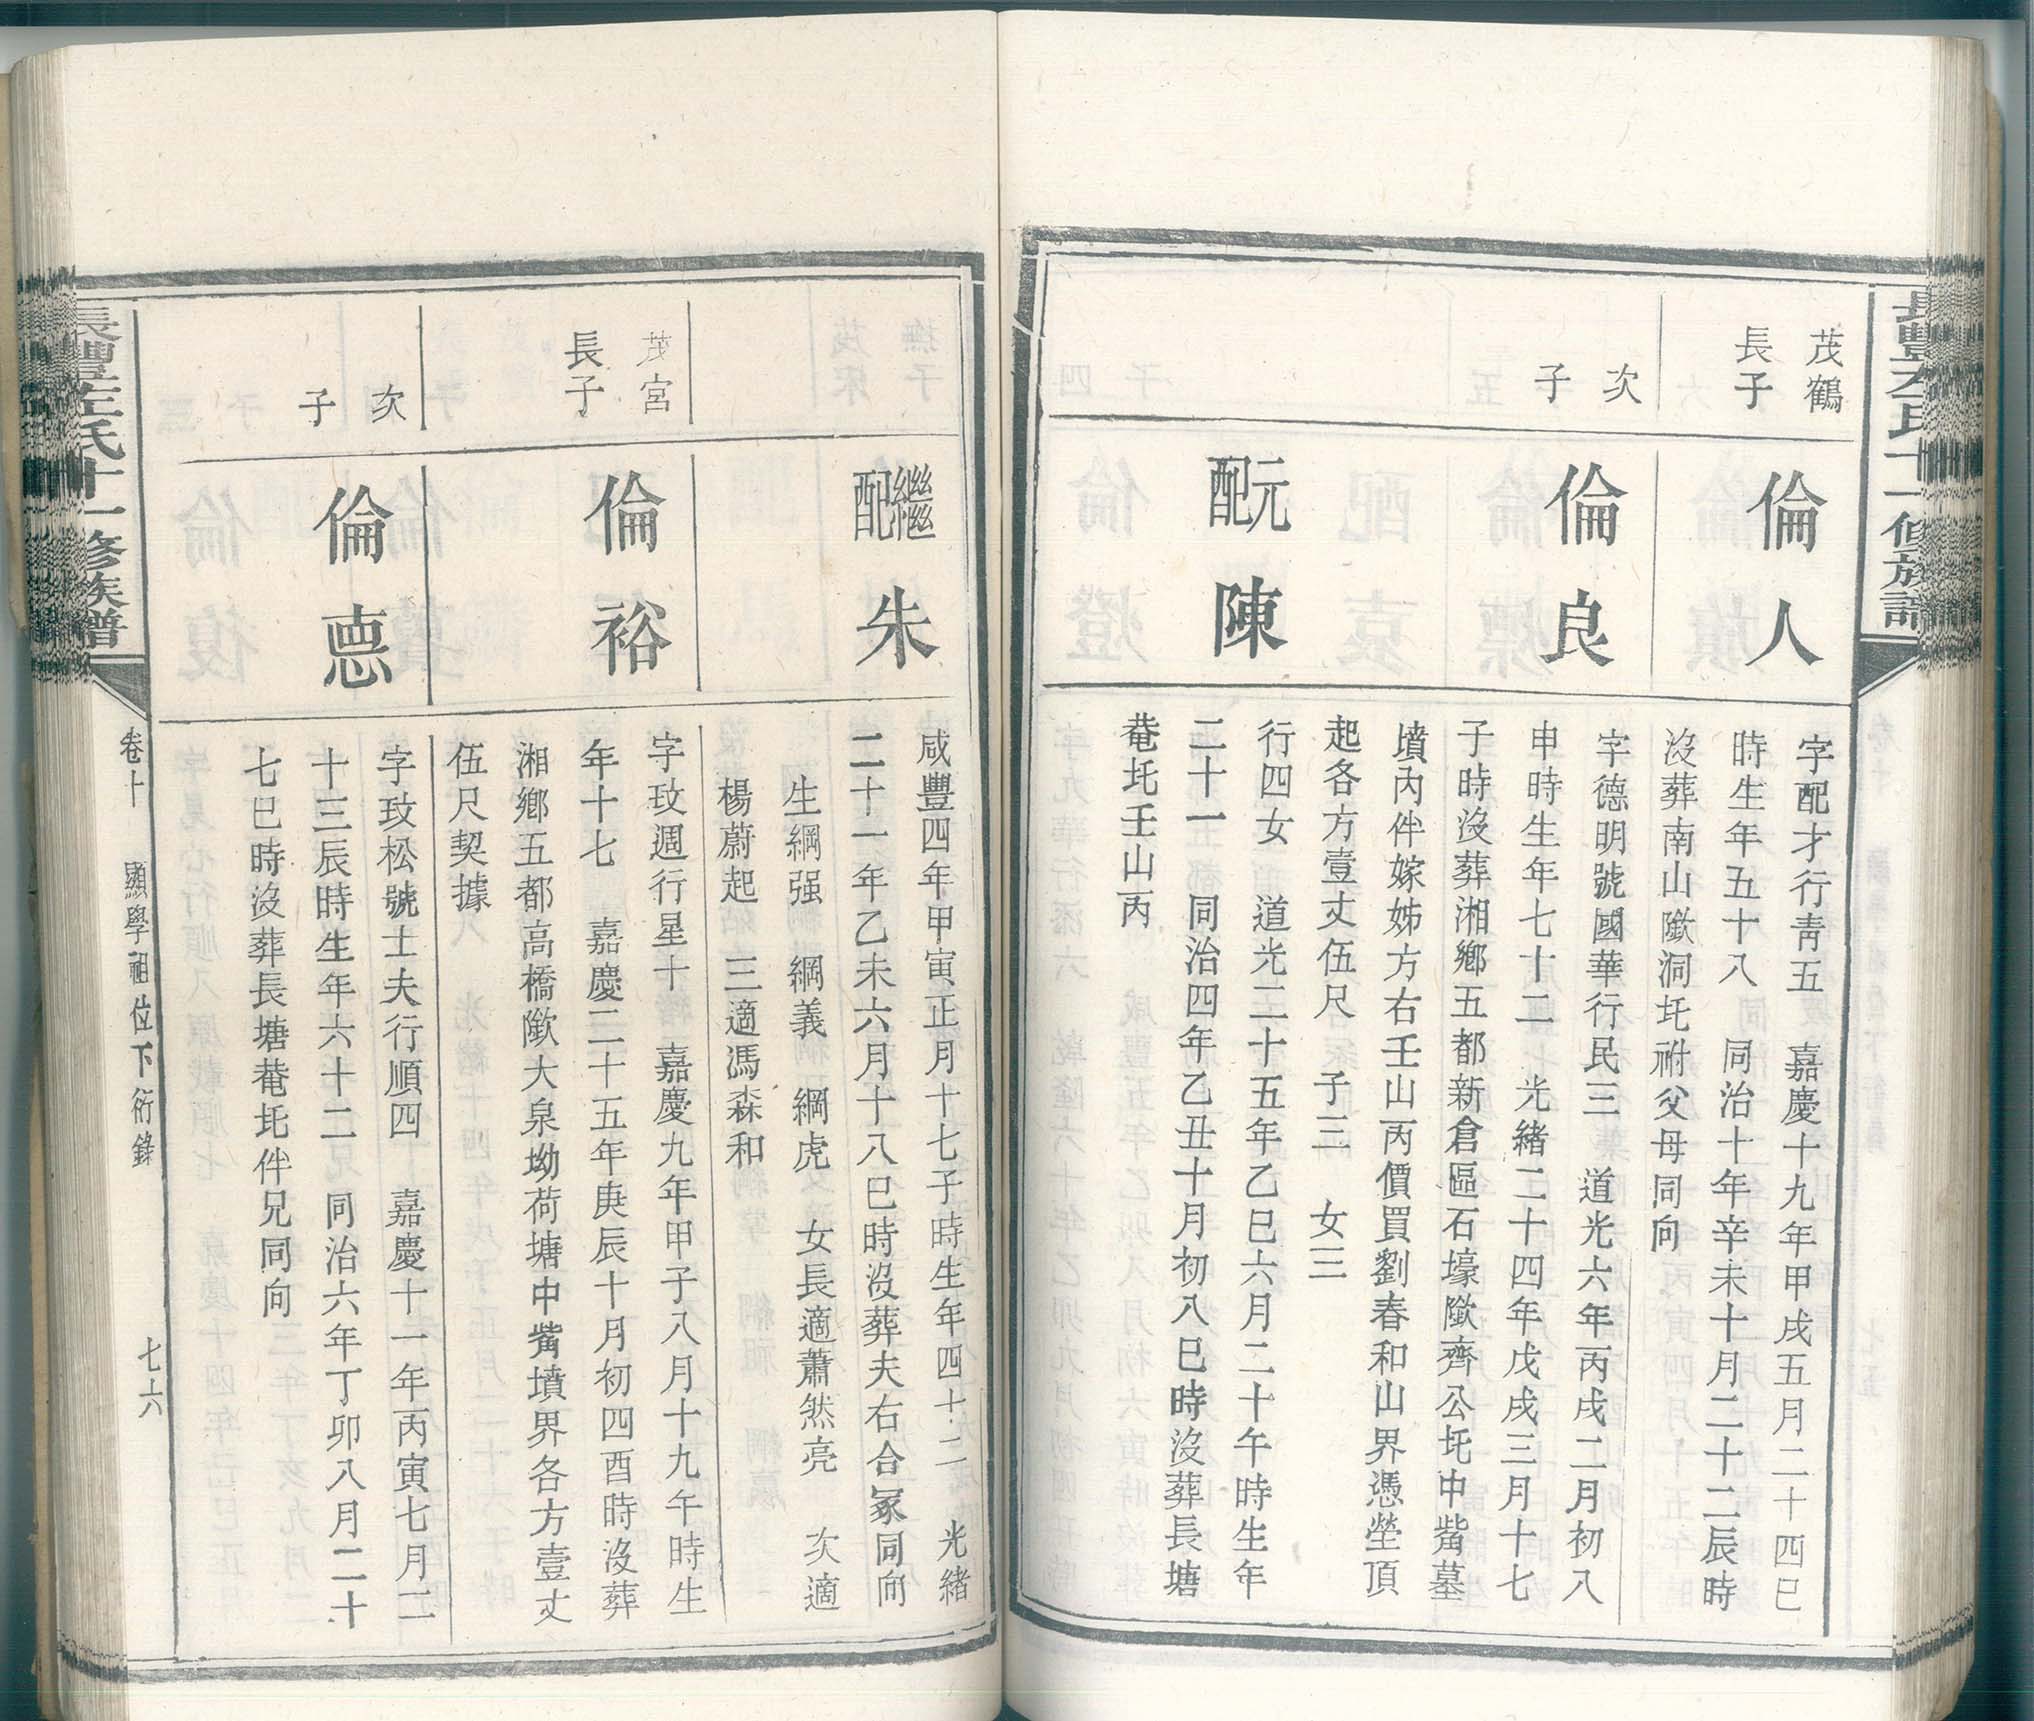 長豐左氏十一修族譜
茂鶴
長子
倫人
字配才行青五　嘉慶十九年甲戌五月二十四巳
時生年五十八　同治十年辛未十月二十二辰時
沒葬南山㘰洞圫祔父母同向
次
子
倫良
字德明號國華行民三　道光六年丙戌二月初八
申時生年七十二　光緒二十四年戊戌三月十七
子時沒葬湘鄉五都新倉區石壕㘰齊公圫中觜墓
墳內伴嫁姊方右壬山丙價買劉春和山界憑塋頂
起各方壹丈伍尺　子三　女三
元配
陳
行四女　道光二十五年乙巳六月二十午時生年
二十一　同治四年乙丑十月初八巳時沒葬長塘
菴圫壬山丙
繼配
朱
咸豐四年甲寅正月十七子時生年四十二　光緒
二十一年乙未六月十八巳時沒葬夫右合冢同向
生綱强　綱義　綱虎　女長適蕭然亮　次適
楊蔚起　三適馮森和
茂宮
長子
倫裕
字玟週行星十　嘉慶九年甲子八月十九午時生
年十七　嘉慶二十五年庚辰十月初四酉時沒葬
湘鄉五都高橋㘰大泉坳荷塘中觜墳界各方壹丈
伍尺契據
次
子
倫悳
字玟松號士夫行順四　嘉慶十一年丙寅七月二
十三辰時生年六十二　同治六年丁卯八月二十
七巳時沒葬長塘菴圫伴兄同向
長豐左氏十一修族譜
卷十　顯學祖位下衍錄　七六